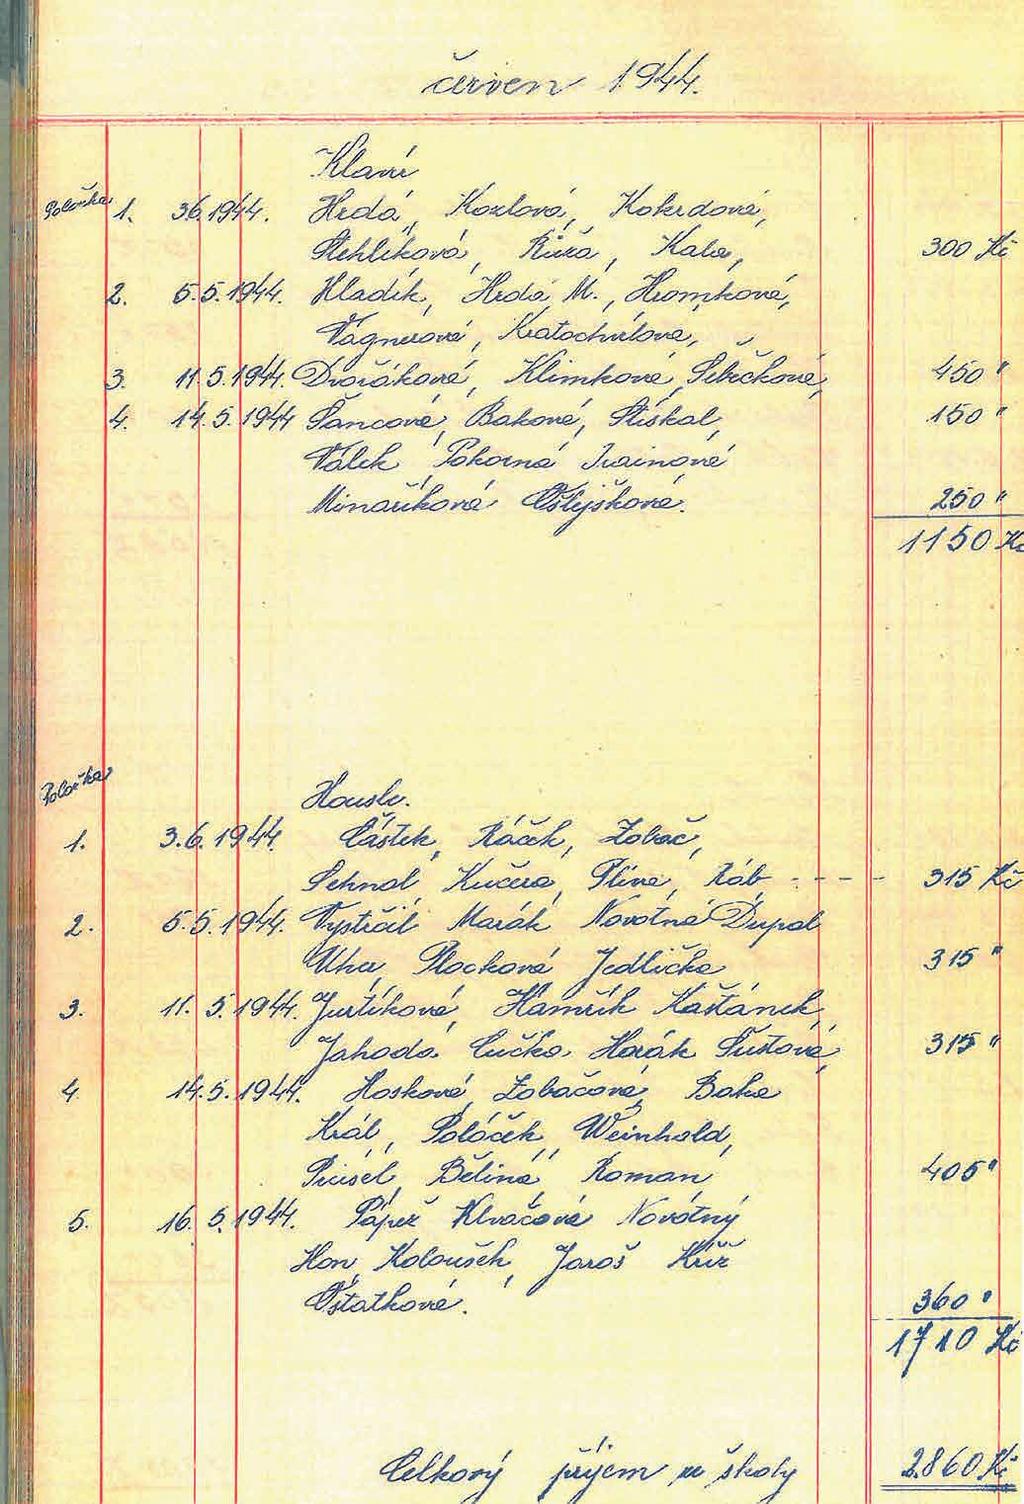 červen 1944.
Klavír
Položka 1. 3.6.1944. Hrdá, Kozlová, Kokrdová,
Stehlíková, Růža, Kala, 300 Kč
2. 5.5.1944. Hladík, Hrdá M., Hromková,
Vágnerová, Kratochvílová,
3. 11.5.1944. Dvořáková, Klimková, 450 "
4. 14.5.1944 Šancová, Baková, Stiskal, 150 "
Válek Pokorná Trainová
Minaříková Ošlejšková. 250 "
1150 Kč
Položka
Housle.
1. 3.6.1944. Částek, Ráček, Zobač,
Sehnal, Kučera, Plíva, Ráb - - - - 315 Kč
2. 5.5.1944. Vystrčil Marák Novotná Dupal
Uher, Plocková Jedlička 315 "
3. 11.5.1944. Jurtíková, Hamřík Kaštánek,
Jahoda Čučka Horák Šustová, 315 "
4. 14.5.1944. Hosková, Zobačová, Baka
Král, Poláček, Weinhold,
Bělina, Roman 405 "
5. 16.5.1944. Papež Klvačová Novotný
Hon, Koloušek, Jaroš Kříž
Ostatková. 360 "
1710 Kč
Celkový příjem ze školy 2.860 Kč